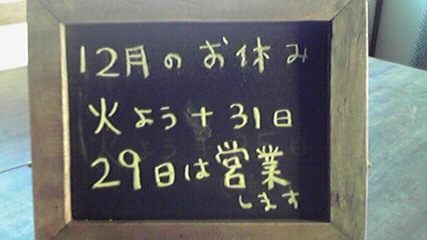 12月のお休み
火よう+31日
29日は営業
します